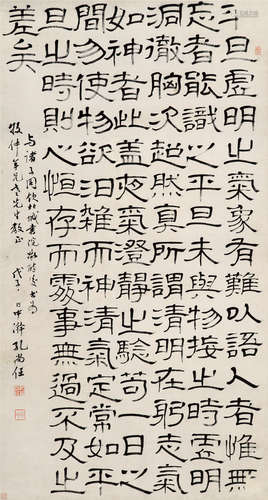 平旦虛明之氣象有難以語人者惟無
忘者能識以平旦未與物接之時虛明
洞徹胸次超然清明在躬志氣
如神者此蓋夜氣澄靜之驗苟一日之
間勿使物欲汩雜而神清氣定常如平
旦之時則心恒存而處事無過不及之
差矣
與諸子同飲北城書院書為
牧仲年先生教正
戊子日中孔尚任